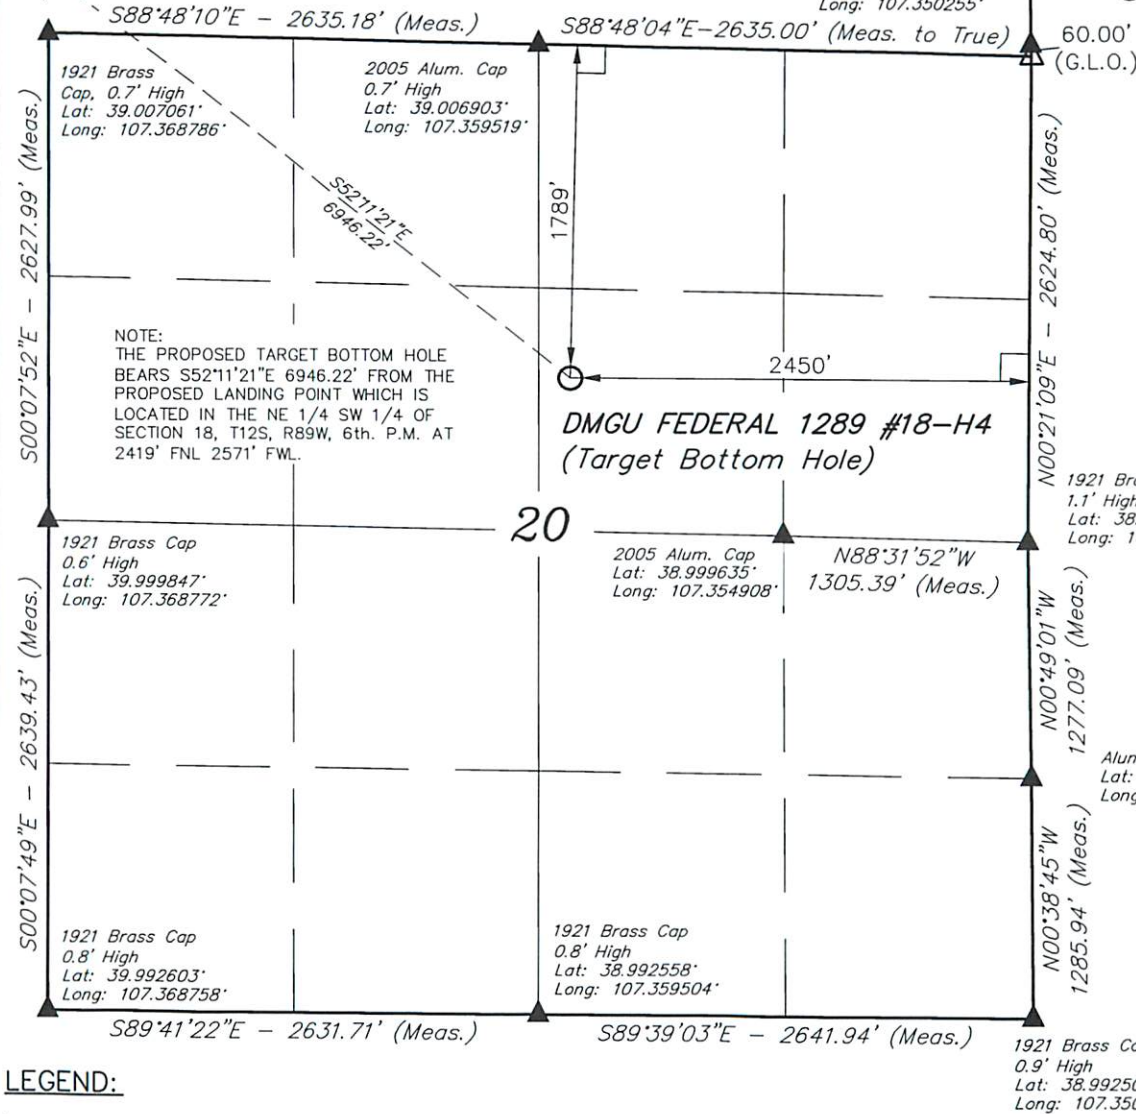 Long: 107.350255°
S88°48'10"E - 2635.18' (Meas.)
S88°48'04"E-2635.00' (Meas. to True)
60.00'
(G.L.O.)
1921 Brass
Cap, 0.7' High
Lat: 39.007061°
Long: 107.368786°
2005 Alum. Cap
0.7' High
Lat: 39.006903°
Long: 107.359519°
S00°07'52"E - 2627.99' (Meas.)
S52°11'21"E
6946.22'
1789'
N00°21'09"E - 2624.80' (Meas.)
NOTE:
THE PROPOSED TARGET BOTTOM HOLE
BEARS S52°11'21"E 6946.22' FROM THE
PROPOSED LANDING POINT WHICH IS
LOCATED IN THE NE 1/4 SW 1/4 OF
SECTION 18, T12S, R89W, 6th. P.M. AT
2419' FNL 2571' FWL.
2450'
DMGU FEDERAL 1289 #18-H4
(Target Bottom Hole)
1921
1.1' High
Lat:
Long:
20
1921 Brass Cap
0.6' High
Lat: 39.999847°
Long: 107.368772°
2005 Alum. Cap
Lat: 38.999635°
Long: 107.354908°
N88°31'52"W
1305.39' (Meas.)
S00°07'49"E - 2639.43' (Meas.)
N00°49'01"W
1277.09' (Meas.)
Lat:
N00°38'45"W
1285.94' (Meas.)
1921 Brass Cap
0.8' High
Lat: 39.992603°
Long: 107.368758°
1921 Brass Cap
0.8' High
Lat: 38.992558°
Long: 107.359504°
S89°41'22"E - 2631.71' (Meas.)
S89°39'03"E - 2641.94' (Meas.)
1921 Brass
0.9' High
Lat:
Long:
LEGEND: